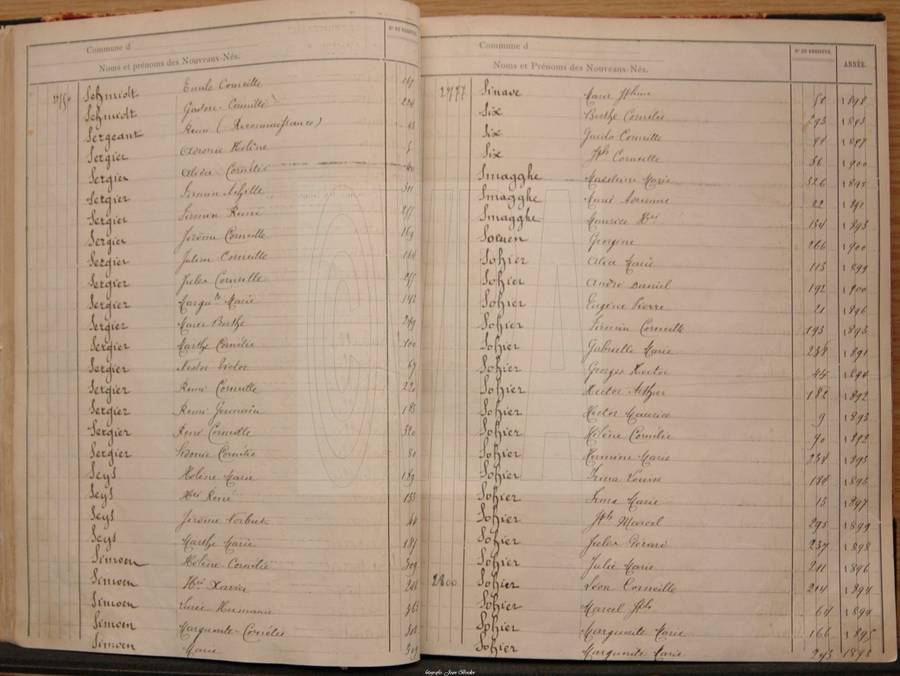 Commune d
Noms et prénoms des Nouveaux-Nés.
N° DU REGISTRE
Schmidt Emile Corneille
Schmidt Gaston Camille
Sergeant Remi (Reconnaissance) 43
Sergier Léonie Hélène
Sergier Alida Cornélie
Sergier Firmin Achille
Sergier Firmin Remi
Sergier Jérôme Corneille 169
Sergier Julien Corneille
Sergier Jules Corneille
Sergier Margte Marie
Sergier Marie Berthe 249
Sergier Marthe Cornélie 100
Sergier Nestor Victor 67
Sergier Remi Corneille 220
Sergier Remi Germain
Sergier René Corneille 320
Sergier Sidonie Cornélie 80
Seys Hélène Marie 189
Seys Hri René
Seys Jérôme Norbert 44
Seys Marthe Marie 187
Simoen Hélène Cornélie 309
Simoen Hri Xavier
Simoen Lucie Hermanie
Simoen Marguerite Cornélie
Simoen Marie 309
Commune d
Noms et Prénoms des Nouveaux-Nés.
N° DU REGISTRE
ANNÉE.
2777 Sinave Marie 50 1898
Six Berthe Cornélie 293 1893
Six Guido Camille 1897
Six Jph Corneille 56 1900
Smagghe Madeleine Marie 326 1895
Smagghe Marie 22 1891
Smagghe Maurice Hri 154 1893
Soenen Georgine 266 1900
Sohier Alida Marie 113 1899
Sohier André Daniel 192 1900
Sohier Eugène Pierre 21 1896
Sohier Firmin Corneille 193 1893
Sohier Gabrielle Marie 238 1891
Sohier Georges Hector 44 1894
Sohier Hector Arthur 182 1892
Sohier Hector Maurice 9 1893
Sohier Hélène Cornélie 90 1892
Sohier Hermine Marie 238 1893
Sohier Irma Louise 188 1893
Sohier Irma Marie 13 1897
Sohier Jph Marcel 293 1899
Sohier Jules Gérard 237 1898
Sohier Julie Marie 211 1896
2800 Sohier Léon Corneille 214 1894
Sohier Marcel Jph 64 1899
Sohier Marguerite Marie 166 1895
Sohier Marguerite Marie 293